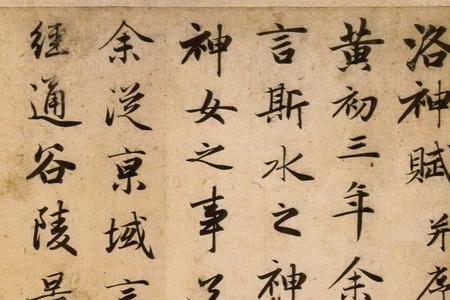 洛神賦并序
黄初三年余
言斯水之神
神女之事
余從京域言
經通谷陵景